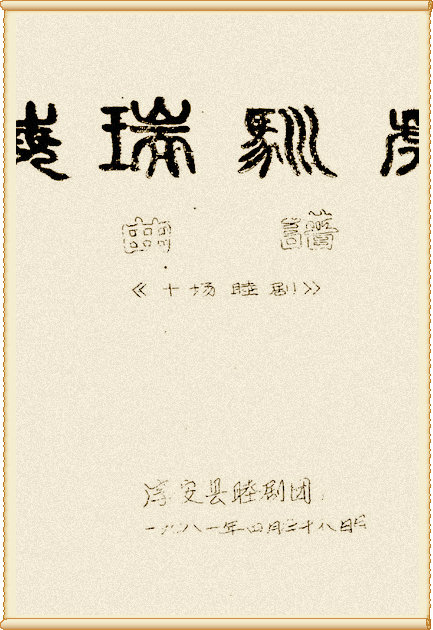 瑞 馴
曲 譜
《十场睦剧》
淳安县睦剧团
一九八一年四月二十八日